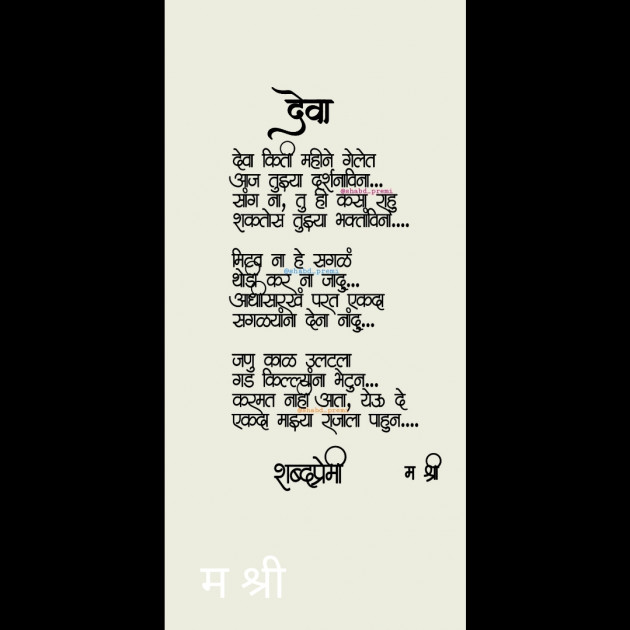 देवा
देवा किती महीने गेलेत
आज तुझ्या दर्शनाविना...
@shabd_premi
सांग ना, तु ही कसा राहु
शकतोस तुझ्या भक्तांविना....
मिटव ना हे सगळं
@shabd_premi
थोडी कर ना जादु...
आधीसारखं परत एकदा
सगळ्यांना देना नांदु...
जणु काळ उलटला
गड किल्ल्यांना भेटुन...
करमत नाही आता, येऊ दे
@shabd_premi
एकदा माझ्या राजाला पाहुन....
शब्दप्रेमी म श्री
म श्री